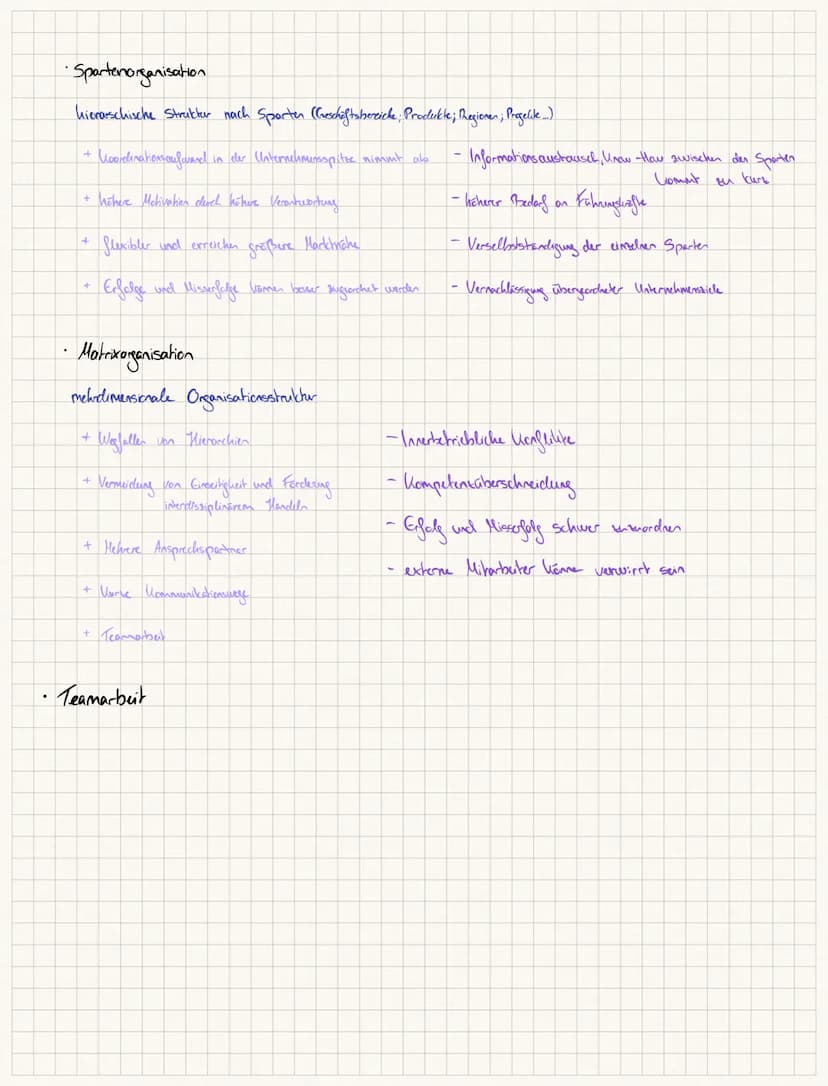 · Spartenorganisation
hierarschische Struktur nach Sparten (Geschäftsbereiche; Produkte; Regionen; Projekte...)
+ Koordinationsaufwand in der Unternehmensspitze nimmt ab
- Informationsaustausch, Know-How zwischen den Sparten
kommt zu kurz
+ höhere Motivation durch höhere Verantwortung
- höherer Bedarf an Führungskräfte
+ flexibler und erreichen größere Marktnähe
- Verselbstständigung der einzelnen Sparten
+ Erfolge und Misserfolge können besser zugeordnet werden
- Vernachlässigung übergeordneter Unternehmensziele
· Matrixorganisation
mehrdimensionale Organisationsstruktur
+ Wegfallen von Hierarchien
- Innerbetriebliche Konflikte
+ Vermeidung von Einseitigkeit und Förderung
interdisziplinärem Handeln
- Kompetenzüberschneidung
- Erfolg und Misserfolg schwer
+ Mehrere Ansprechspartner
- externe Mitarbeiter könne verwirrt sein
+ Kommunikationswege
+ Teamarbeit
· Teamarbeit